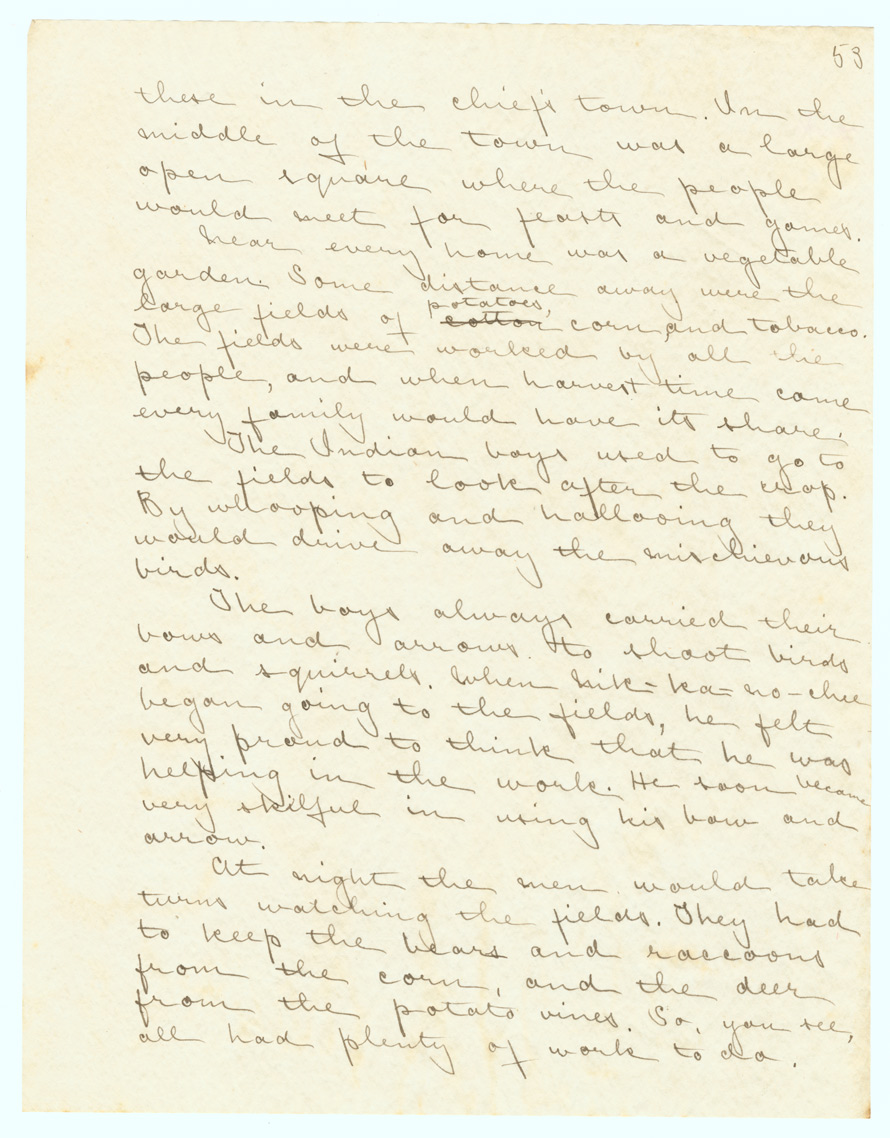 53
these in the chief's town. In the
middle of the town was a large
open square where the people
would meet for feasts and games.
Near every home was a vegetable
garden. Some distance away were the
large fields of ~~cotton~~ potatoes, corn, and tobacco.
The fields were worked by all the
people, and when harvest time came
every family would have its share.
The Indian boys used to go to
the fields to look after the crop.
By whooping and hallooing they
would drive away the mischievous
birds.
The boys always carried their
bows and arrows to shoot birds
and squirrels. When Nik-ka-no-chee
began going to the fields, he felt
very proud to think that he was
helping in the work. He soon became
very skilful in using his bow and
arrow.
At night the men would take
turns watching the fields. They had
to keep the bears and raccoons
from the corn, and the deer
from the potato vines. So, you see,
all had plenty of work to do.